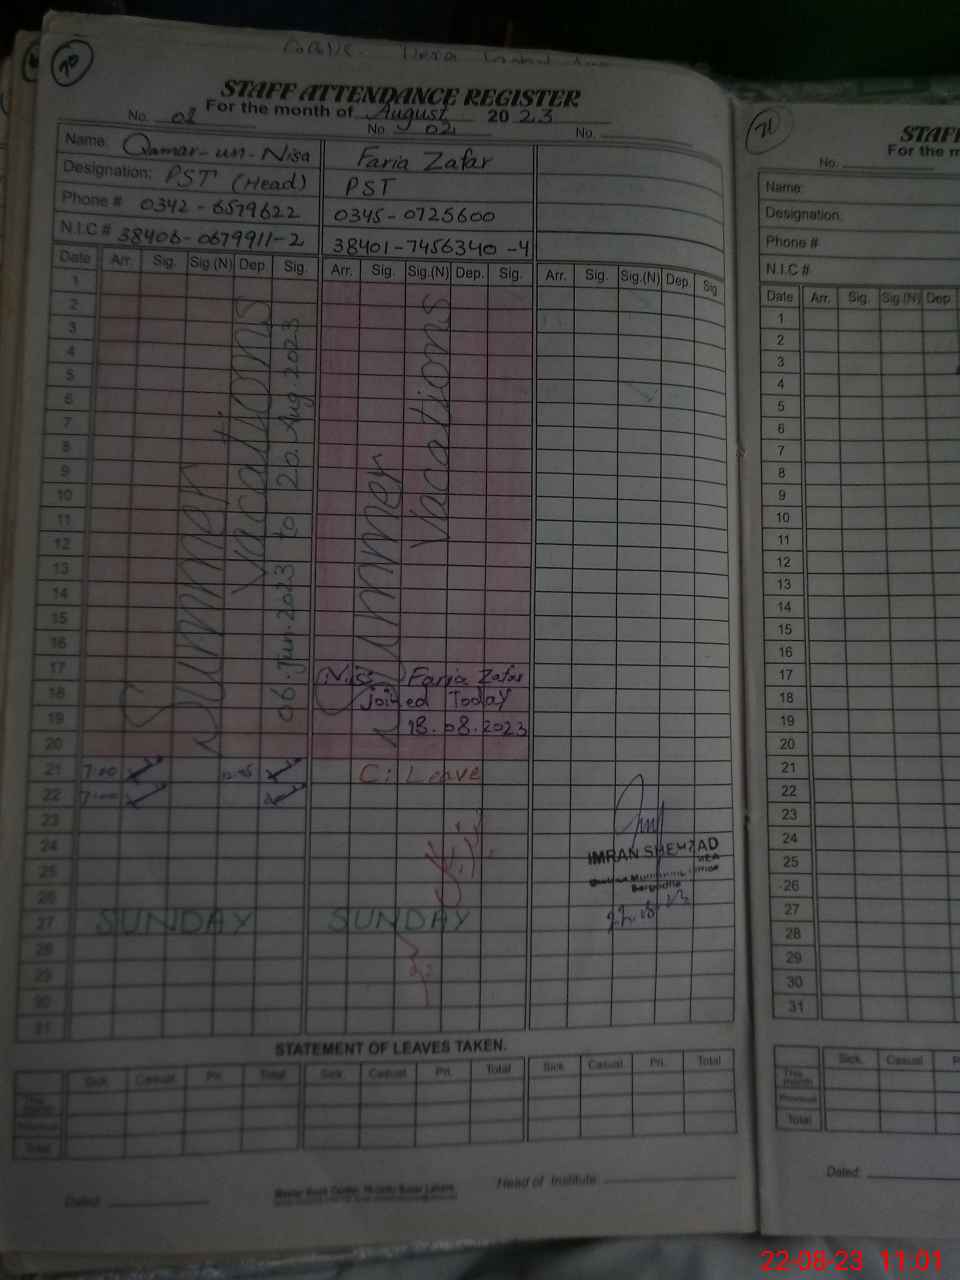 70
STAFF ATTENDANCE REGISTER
For the month of August 2023
No. 01 No. 02 No.
Name: Qamar-un-Nisa Faria Zafar
Designation: PST (Head) PST
Phone # 0342-6579622 0345-0725600
N.I.C # 38406-0679911-2 38401-7456340-4
Date Arr. Sig. Sig.(N) Dep. Sig. Arr. Sig. Sig.(N) Dep. Sig. Arr. Sig. Sig.(N) Dep. Sig
1
2
3
4
5
6
7
8
9
10
11
12
13
14
15
16
17
18
19
20
Summer Vacations
06.Jun.2023 to 20.Aug.2023
Summer Vacations
Miss Faria Zafar
Joined Today
18.08.2023
21 7:00 C: Leave
22 7:00
23
24
25
26
27 SUNDAY SUNDAY
28
29
30
31
IMRAN SHEHZAD
Sargodha
STATEMENT OF LEAVES TAKEN.
Sick Casual Pri. Total Sick Casual Pri. Total Sick Casual Pri. Total
This month
Previous
Total
Dated: Head of Institute
71
STAFF
For the m
No.
Name:
Designation:
Phone #
N.I.C #
Date Arr. Sig. Sig.(N) Dep
1
2
3
4
5
6
7
8
9
10
11
12
13
14
15
16
17
18
19
20
21
22
23
24
25
26
27
28
29
30
31
Sick Casual P
This month
Previous
Total
Dated:
22-08-23 11:01